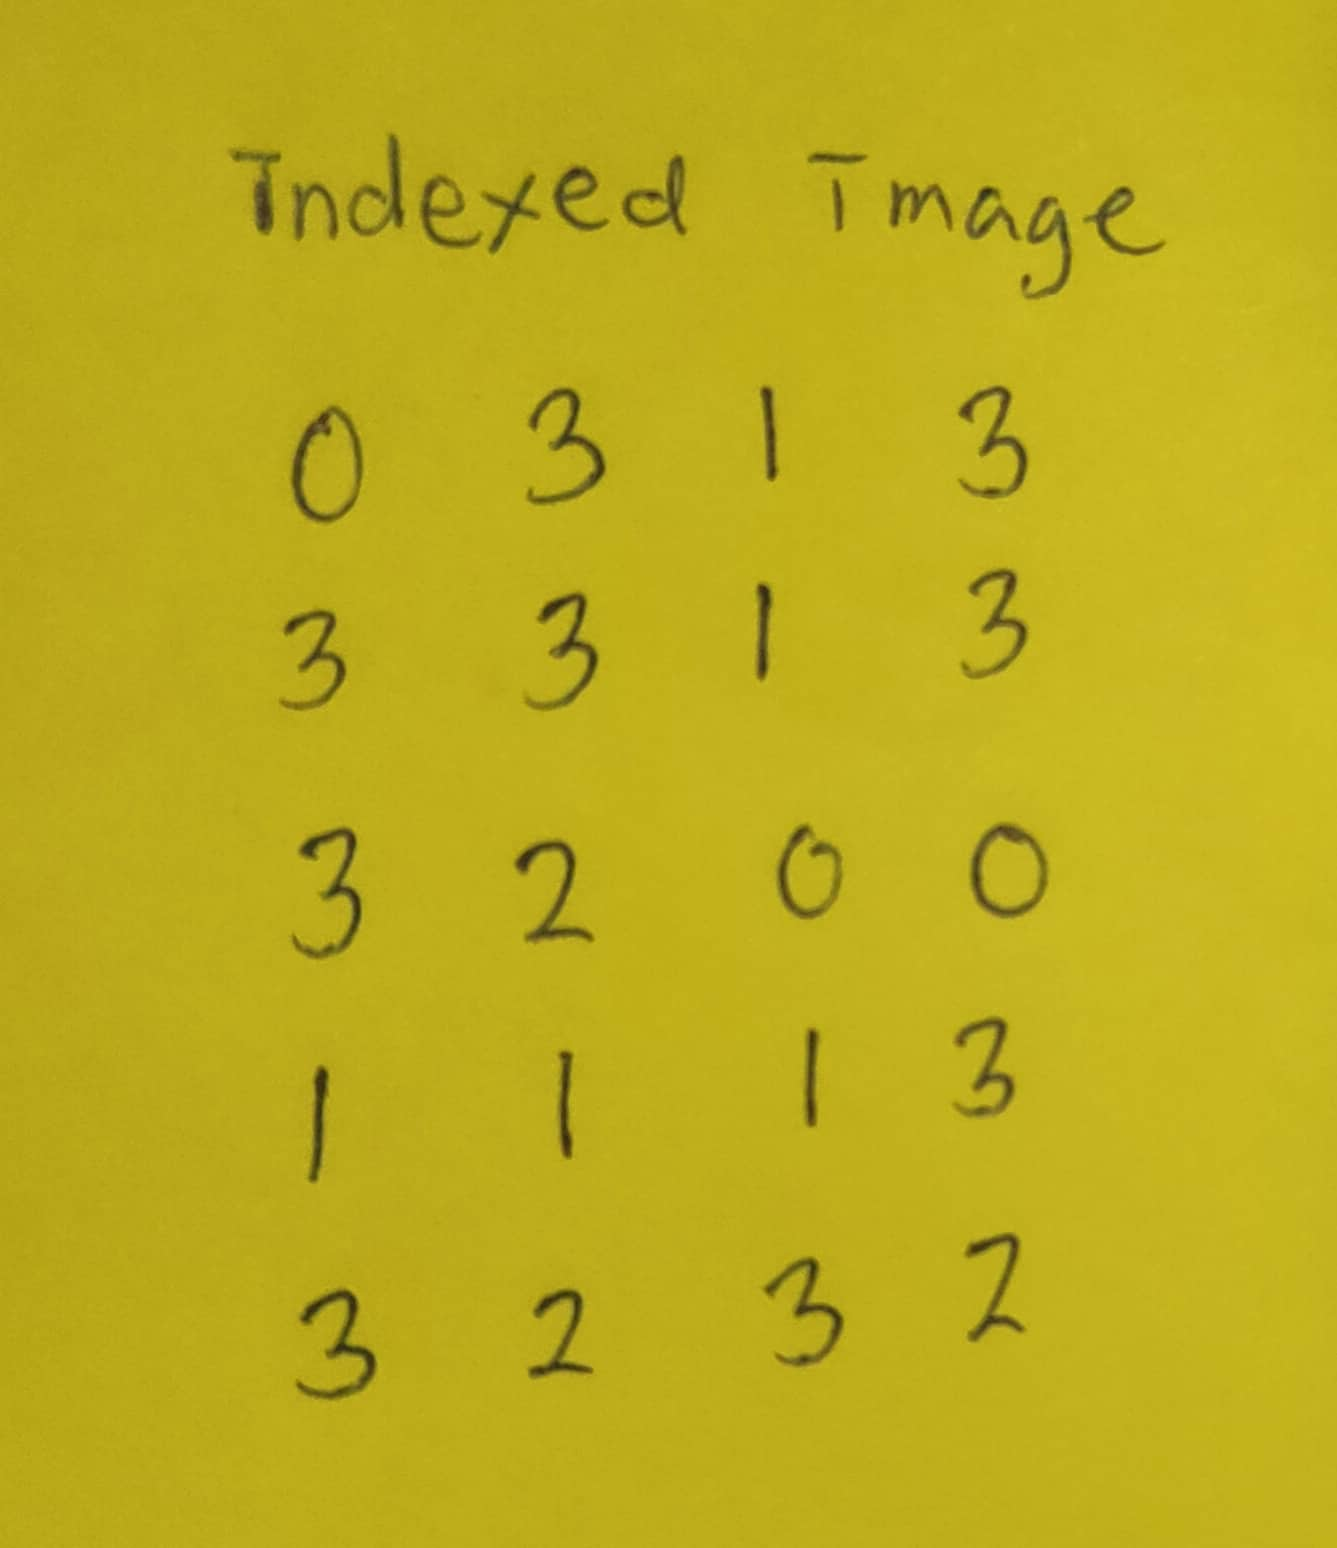 Indexed Image
0 3 1 3
3 3 1 3
3 2 0 0
1 1 1 3
3 2 3 2